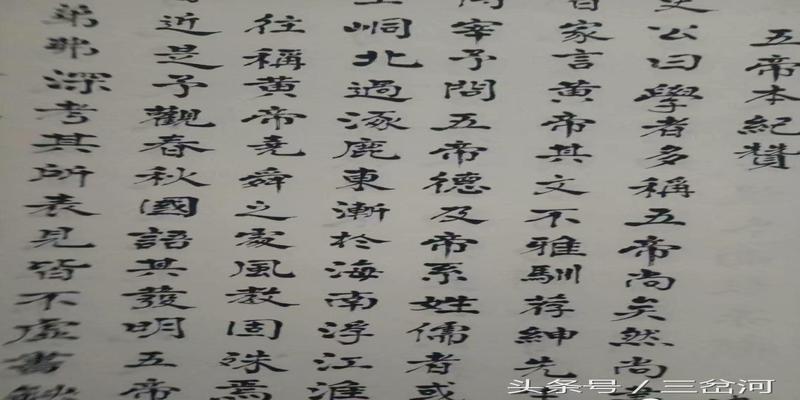 五帝本紀贊
史公曰學者多稱五帝尚矣然尚
家言黄帝其文不雅馴荐紳先生
宰予問五帝德及帝系姓儒者或
峒北過涿鹿東漸於海南浮江淮
往稱黄帝堯舜之處風教固殊焉
近是予觀春秋國語其發明五帝
弟弗深考其所表見皆不虛書缺
头条号 / 三岔河